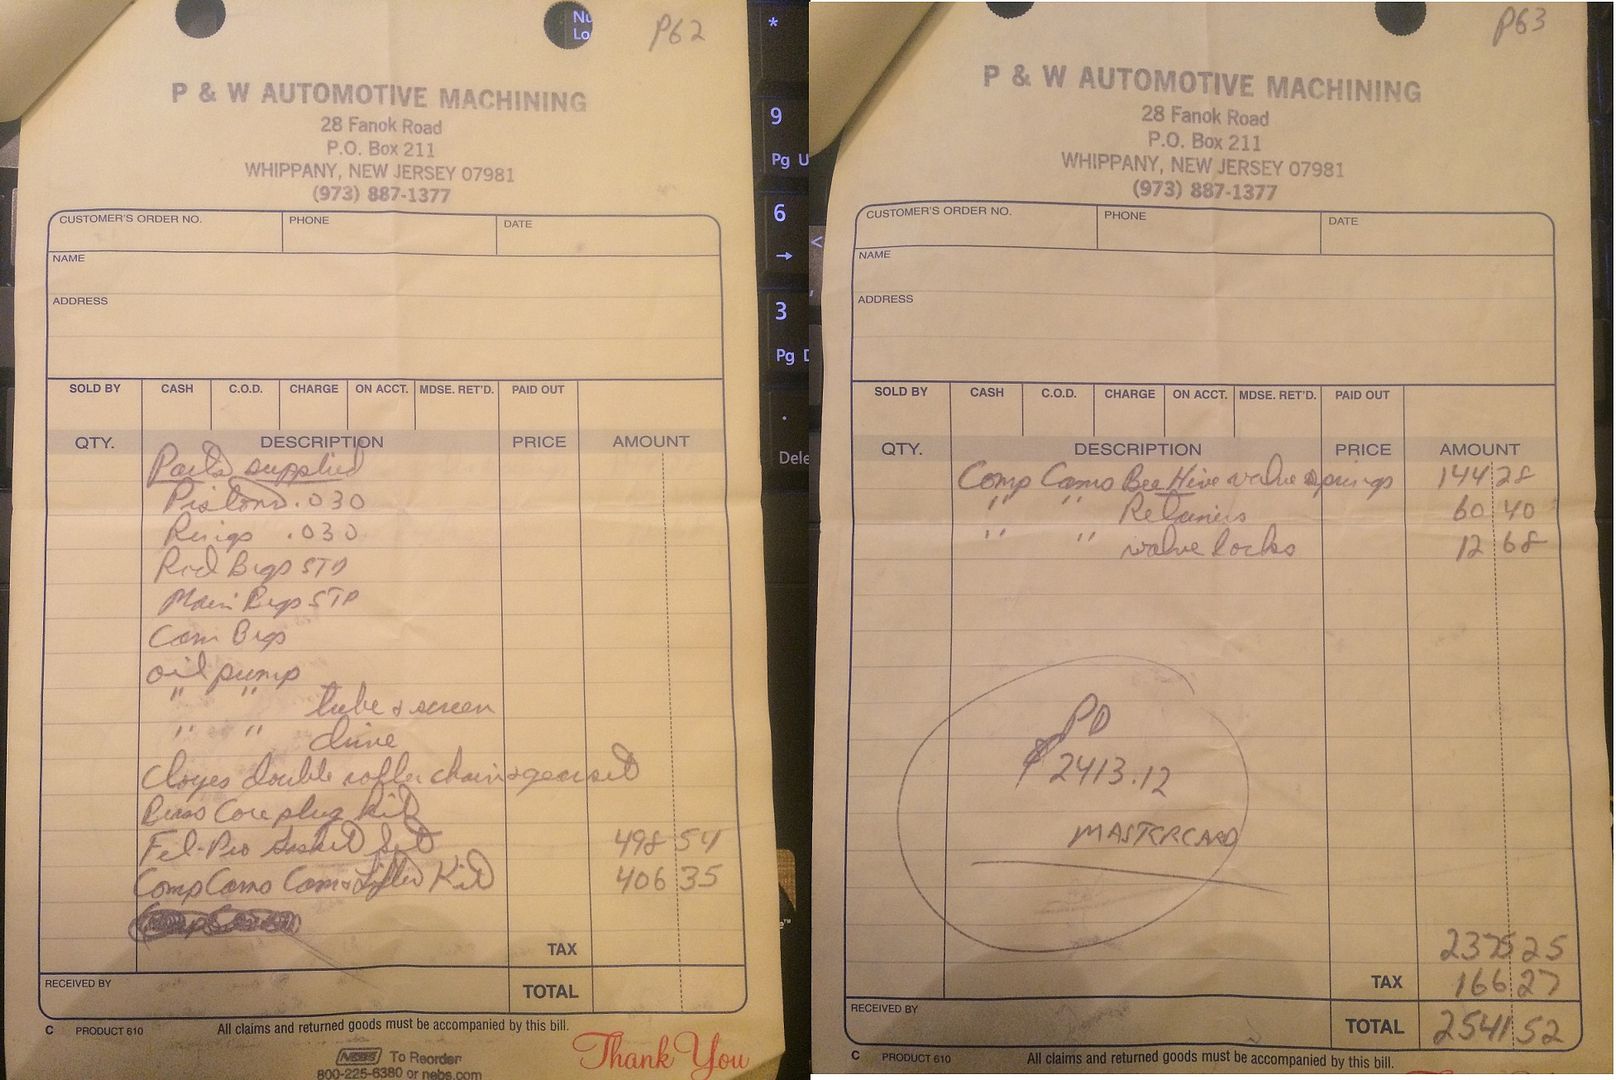 P62
P & W AUTOMOTIVE MACHINING
28 Fanok Road
P.O. Box 211
WHIPPANY, NEW JERSEY 07981
(973) 887-1377
CUSTOMER'S ORDER NO. PHONE DATE
NAME
ADDRESS
SOLD BY CASH C.O.D. CHARGE ON ACCT. MDSE. RET'D. PAID OUT
QTY. DESCRIPTION PRICE AMOUNT
Parts supplied
Pistons .030
Rings .030
Rod Brgs STD
Main Brgs STD
Cam Brgs
oil pump
" " tube & screen
" " drive
Cloyes double roller chain & gear set
Brass Core plug kit
Fel-Pro Gasket Set 498 54
Comp Cams Cam & Lifter Kit 406 35
TAX
RECEIVED BY
TOTAL
C PRODUCT 610 All claims and returned goods must be accompanied by this bill.
NEBS To Reorder
800-225-6380 or nebs.com
Thank You
Nu
Lo
*
9
Pg U
6
→
3
Pg D
.
Dele
P63
P & W AUTOMOTIVE MACHINING
28 Fanok Road
P.O. Box 211
WHIPPANY, NEW JERSEY 07981
(973) 887-1377
CUSTOMER'S ORDER NO. PHONE DATE
NAME
ADDRESS
SOLD BY CASH C.O.D. CHARGE ON ACCT. MDSE. RET'D. PAID OUT
QTY. DESCRIPTION PRICE AMOUNT
Comp Cams Bee Hive valve springs 144 28
" " Retainers 60 40
" " valve locks 12 68
PD
$2413.12
MASTERCARD
2375 25
TAX 166 27
RECEIVED BY
TOTAL 2541 52
C PRODUCT 610 All claims and returned goods must be accompanied by this bill.